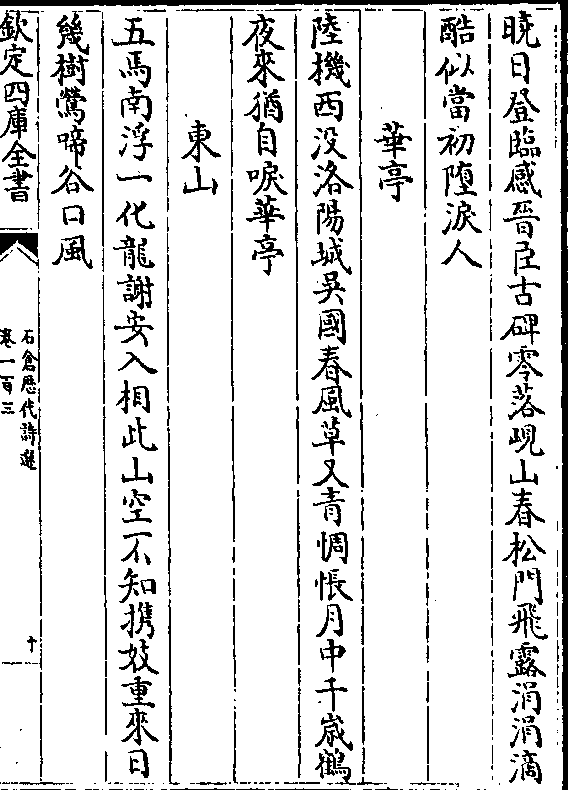 曉日登臨感晉臣古碑零落峴山春松門飛露涓涓滴
酷似當初墮淚人
華亭
陸機西没洛陽城吳國春風草又青惆悵月中千歲鶴
夜來猶自唳華亭
東山
五馬南浮一化龍謝安入相此山空不知携妓重來日
幾樹鶯啼谷口風
欽定四庫全書
石倉歷代詩選
卷一百三
十